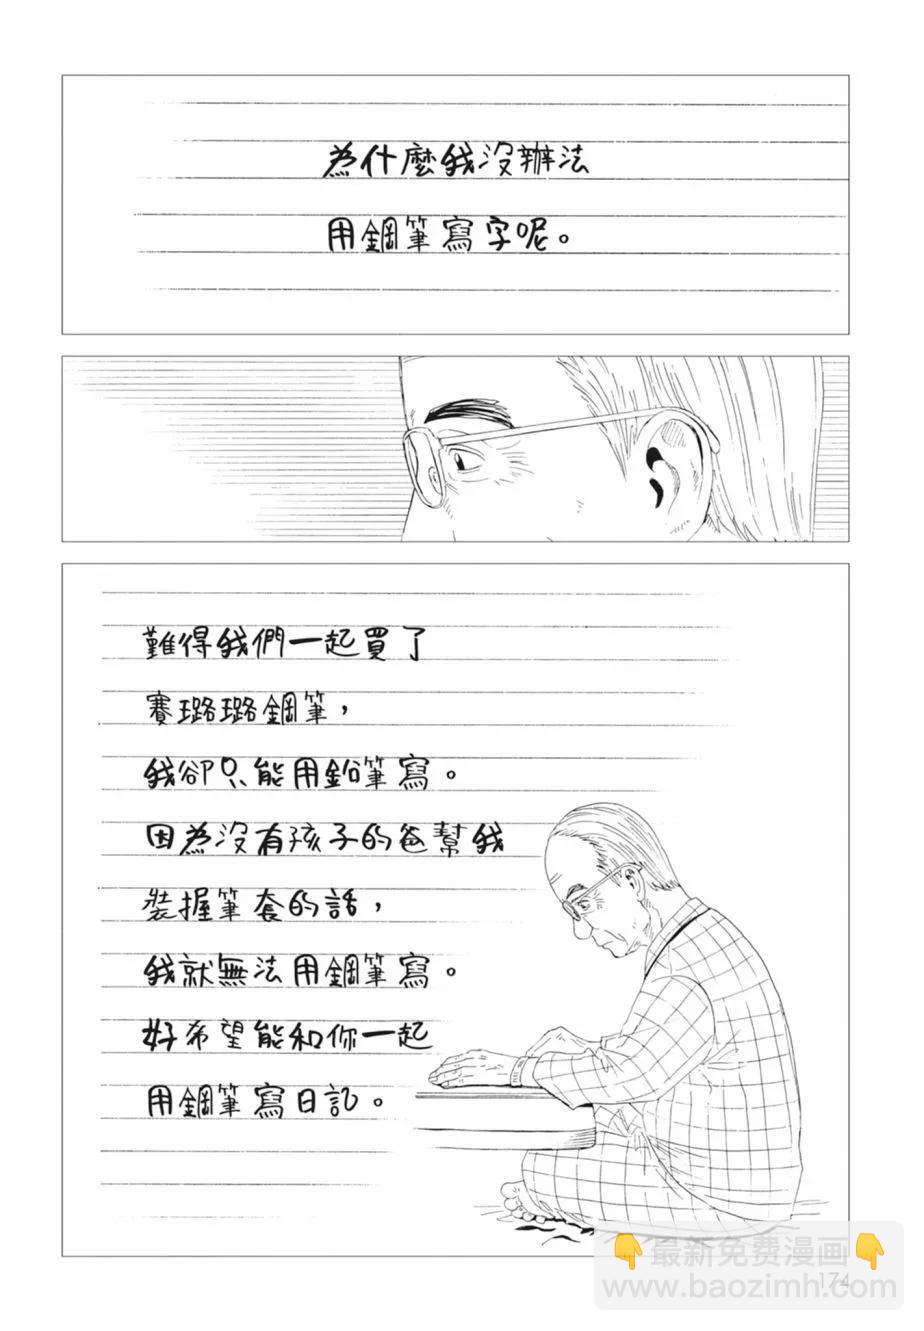 為什麼我沒辦法
用鋼筆寫字呢。
難得我們一起買了
賽璐璐鋼筆，
我卻只能用鉛筆寫。
因為沒有孩子的爸幫我
裝握筆套的話，
我就無法用鋼筆寫。
好希望能和你一起
用鋼筆寫日記。
👇最新免费漫画👇
www.baozimh.com
174